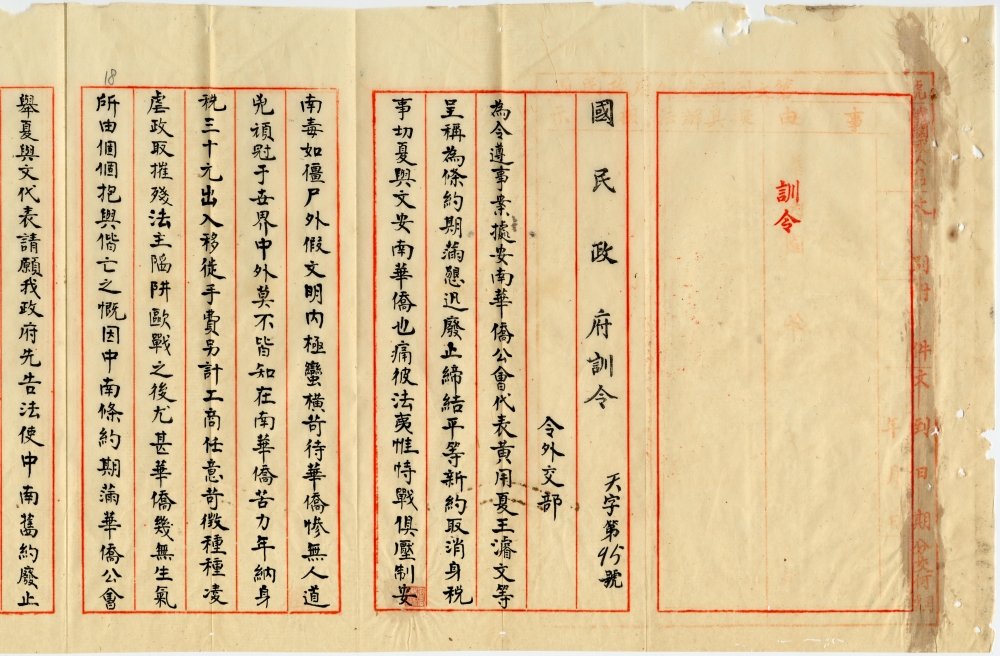 訓令
國民政府訓令
天字第95號
令外交部
為令遵事案據安南華僑公會代表黃用夏王濬文等
呈稱為條約期滿懇迅廢止締結平等新約取消身稅
事切夏與文安南華僑也痛彼法夷惟恃戰俱壓制安
南毒如僵尸外假文明內極蠻橫苛待華僑慘無人道
兇頑冠于世界中外莫不皆知在南華僑苦力年納身
稅三十元出入移徙手費另計工商任意苛徵種種凌
虐政取摧殘法主陷阱歐戰之後尤甚華僑幾無生氣
所由個個抱與偕亡之慨因中南條約期滿華僑公會
舉夏與文代表請願我政府先告法使中南舊約廢止
18